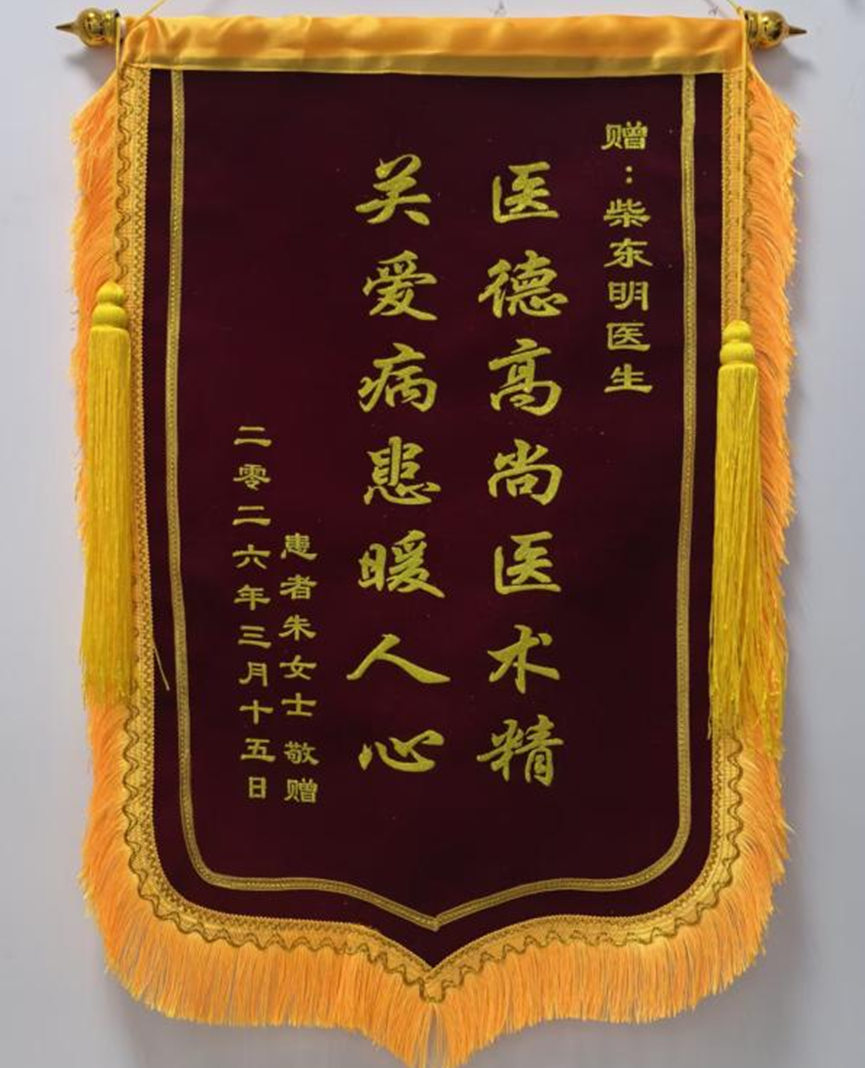 赠：柴东明医生
医德高尚医术精
关爱病患暖人心
患者朱女士 敬赠
二零二六年三月十五日